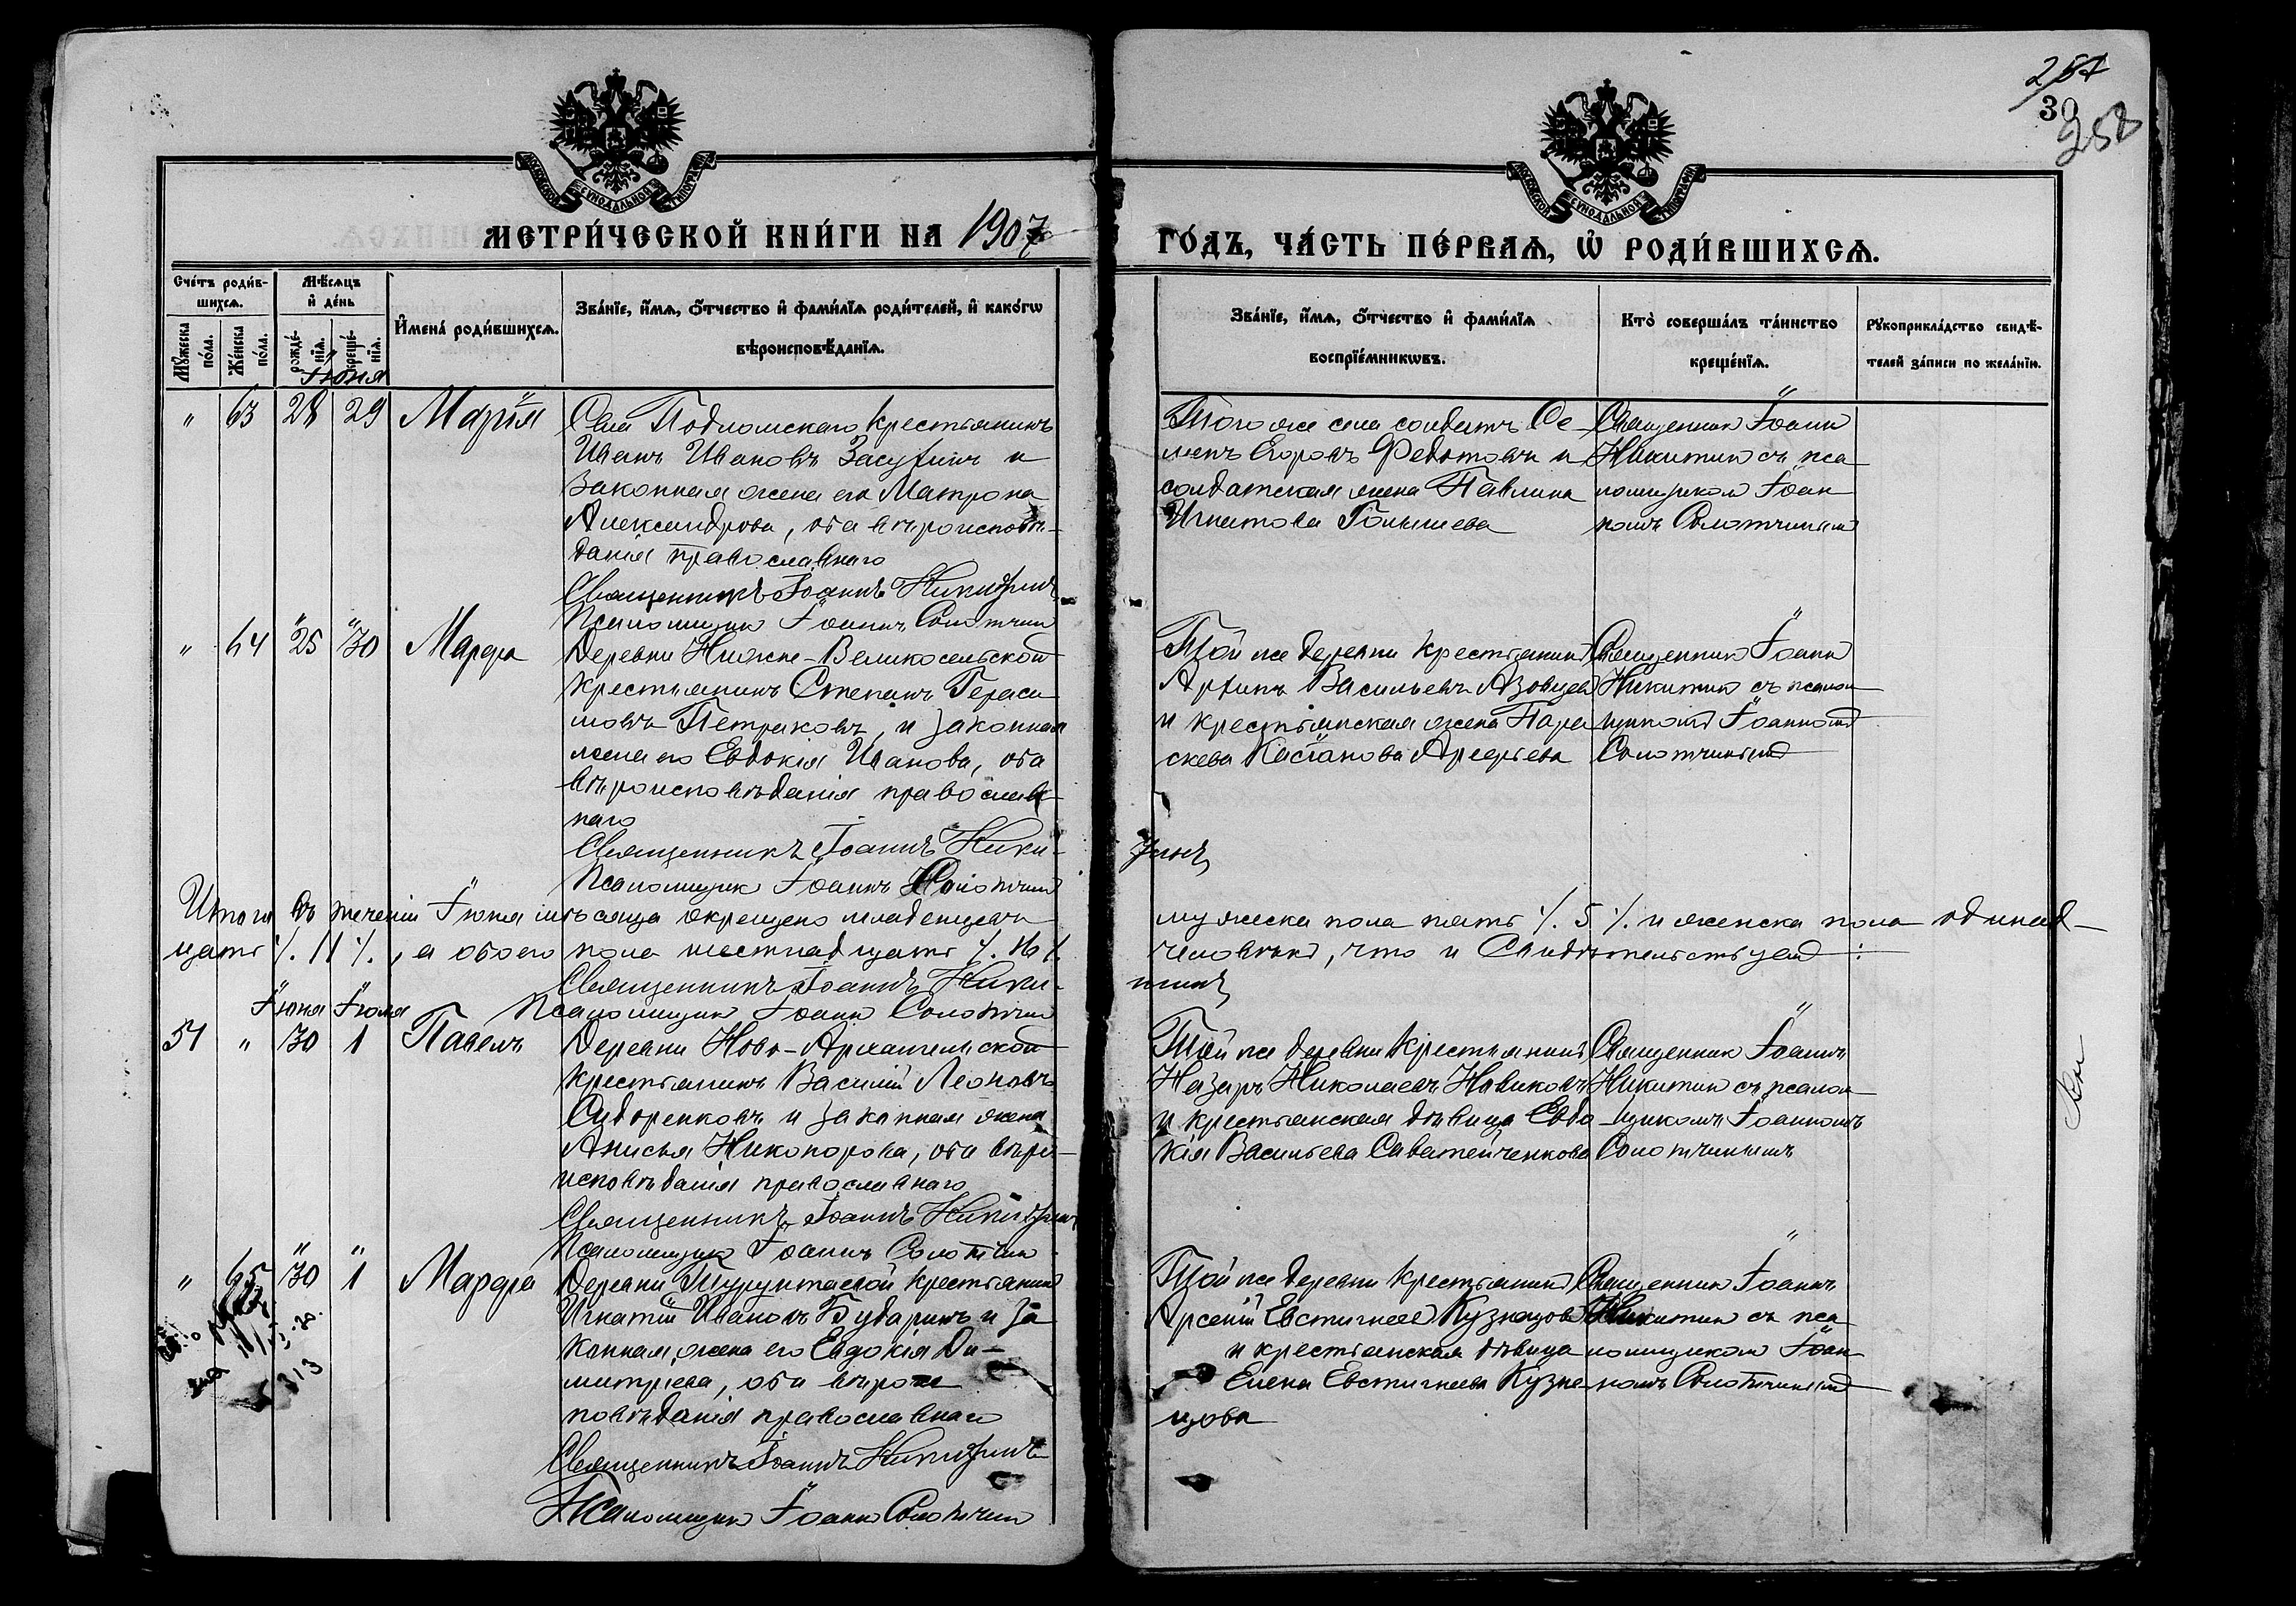 257
30
258
МЕТРИ́ЧЕСКОЙ КНИ́ГИ НА 1907
ГО́ДЪ, ЧА́СТЬ ПЕ́РВАѦ, Ѡ҆ РОДИ́ВШИХСѦ.
Сче́тъ роди́в-
шихсѧ.
Мѣ́сѧцъ
и҆ де́нь
Мꙋ́жеска по́ла.
Же́нска по́ла.
рожде́-
нїѧ.
креще́-
нїѧ.
И҆мена̀ роди́вшихсѧ.
Зва́нїе, и҆́мѧ, ѻ҆́тчество и҆ фами́лїѧ роди́телей, и҆ како́гѡ
вѣроисповѣ́данїѧ.
Зва́нїе, и҆́мѧ, ѻ҆́тчество и҆ фами́лїѧ
воспрїе́мникѡвъ.
Кто̀ соверша́лъ та́инство
креще́нїѧ.
Рꙋкоприкла́дство свидѣ́-
телей за́писи по жела́нїю.
Іюня
" 63 28 29 Марія
Села Подломскаго крестьянинъ
Иванъ Ивановъ Засухинъ и
законная жена его Матрона
Александрова, оба вѣроисповѣ-
данія православнаго
Священникъ Іоаннъ Никитинъ
Псаломщик Іоаннъ Солотчин
Того же села солдатъ Се-
менъ Егоровъ Федотовъ и
солдатская жена Павлина
Игнатова Голышева
Священник Іоанн
Никитин съ пса
ломщиком Іоан
номъ Солотчиным
" 64 25 30 Марфа
Деревни Нижне-Великосельской
крестьянинъ Степанъ Гераси
мовъ Петраковъ, и законная
жена его Евдокія Иванова, оба
вѣроисповѣданія православ-
наго
Священникъ Іоаннъ Ники-
тинъ
Псаломщик Іоаннъ Солотчин
Той же деревни крестьянин
Васильевъ
и крестьянская жена Пара
скева
Священник Іоанн
Никитин съ псалом
щиком Іоанном
Солотчиным
Итого въ теченіи Іюня мѣсяца окрещено младенцевъ мужеска пола пять /. 5 /. и женска пола одинад-
цать /. 11 /., а обоего пола шестнадцать /. 16 /. человѣкъ, что и свидѣтельствуем:
Священникъ Іоаннъ Ники-
тинъ
Псаломщик Іоанн Солотчин
Іюня Іюля
51 " 30 1 Павелъ
Деревни Ново-Архангельской
крестьянинъ Василій Леоновъ
Сидоренковъ и законная жена
Анисья Никонорова, оба вѣро-
исповѣданія православнаго
Священникъ Іоаннъ Никитинъ
Псаломщик Іоаннъ Солотчин
Той же деревни крестьянин
Назаръ Николаевъ Новиковъ
и крестьянская дѣвица Евдо-
кія Васильева Саватейченкова
Священник Іоаннъ
Никитин съ псалом
щикомъ Іоанномъ
Солотчинымъ
" 65 30 1 Марфа
Деревни Турунтаевой крестьянин
Игнатій Ивановъ Бударинъ и за
конная жена его Евдокія Ди-
митріева, оба вѣроис
повѣданія православнаго
Священникъ Іоаннъ Никитинъ
Псаломщик Іоанн Солотчин
Той же деревни крестьянин
Арсеній Евстигнеев Кузнецов
и крестьянская дѣвица
Елена Евстигнеева Кузне
цова
Священник Іоаннъ
Никитин съ пса
ломщиком Іоан
номъ Солотчиным